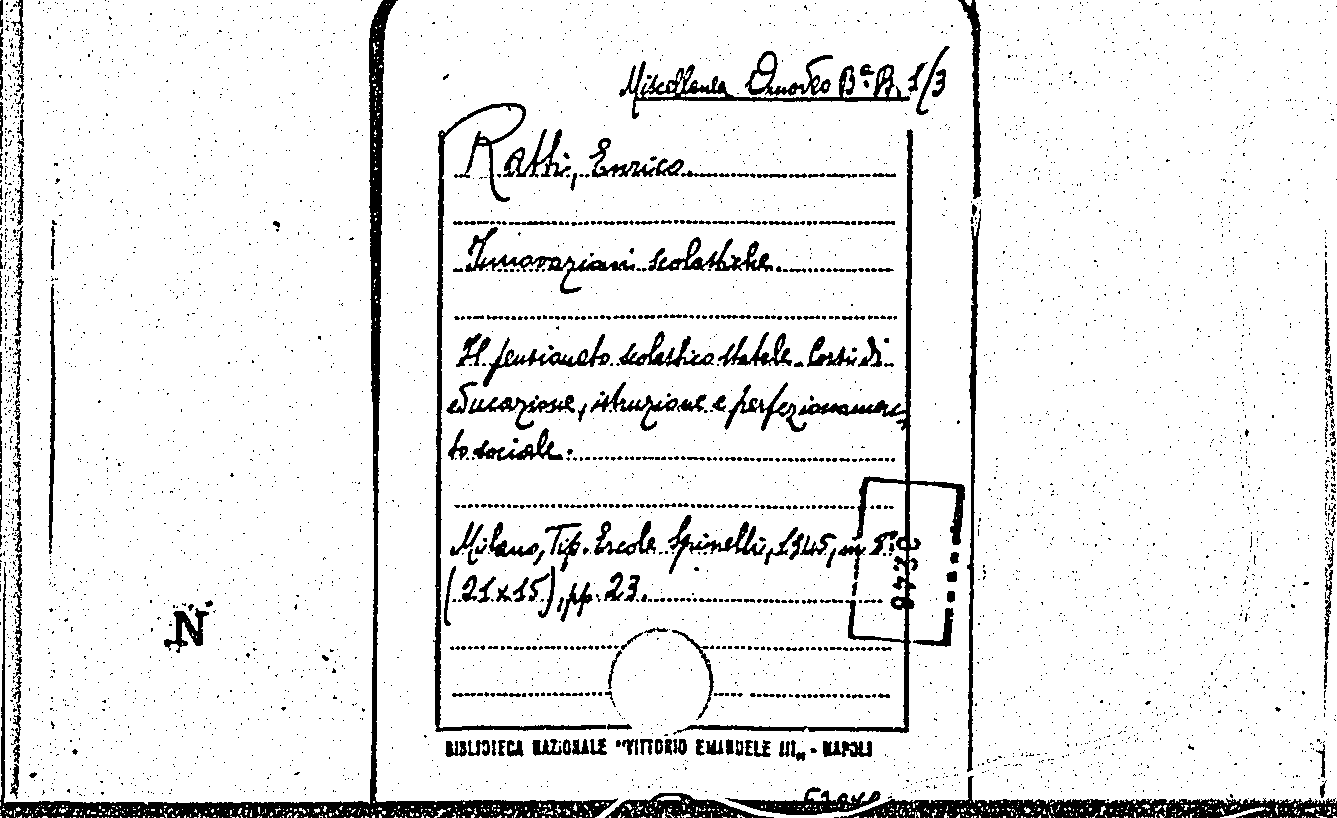 Miscellanea Omodeo Bª B. 1/3
Ratti, Enrico.
Innovazioni scolastiche.
Il pensionato scolastico statale. Corsi di
educazione, istruzione e perfezionamen-
to sociale.
Milano, Tip. Ercole Spinelli, 1945, in 8º
(21x15), pp. 23.
N
BIBLIOTECA NAZIONALE "VITTORIO EMANUELE III" - NAPOLI